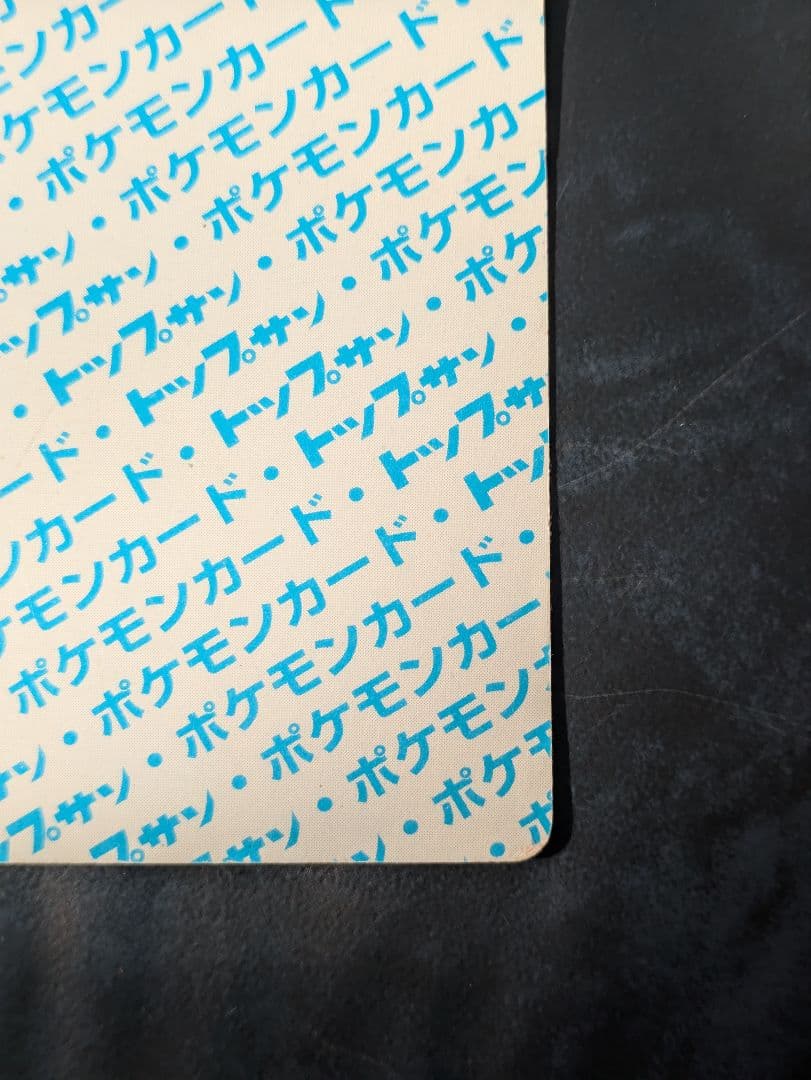 ンカー
ケモンカー
・ポケモンカード
サン・ポケモンカード・
ップサン・ポケモンカード
・トップサン・ポケモンカー
ード・トップサン・ポケモン
ンカード・トップサン・ポケ
モンカード・トップサン・
ポケモンカード・トップサ
ン・ポケモンカード・トッ
プサン・ポケモンカード・
プサン・ポケモンカー
サン・ポケモン
ン・ポケ
・ポ